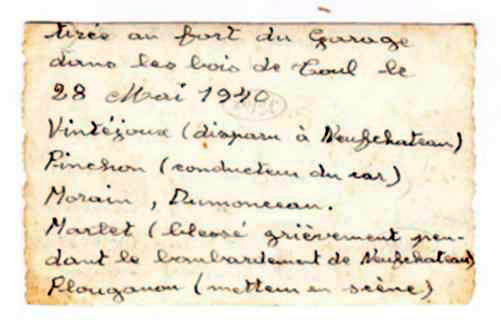 tirée au fort du Garage
dans les bois de Toul le
28 Mai 1940
Vintéjoux (disparu à Neufchateau)
Pinchon (conducteur du car)
Morain, Dumonceau.
Martet (blessé grièvement pen-
dant le bombardement de Neufchateau)
Plouganou (metteur en scène)